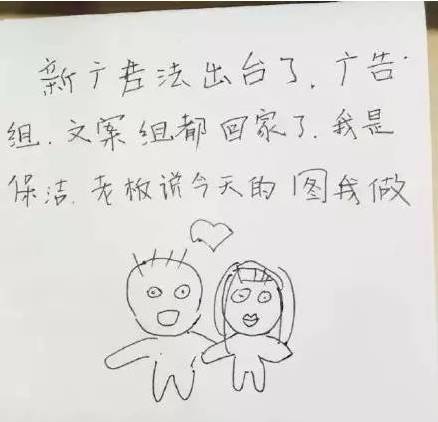 新广告法出台了,广告
组.文案组都回家了.我是
保洁.老板说今天的图我做